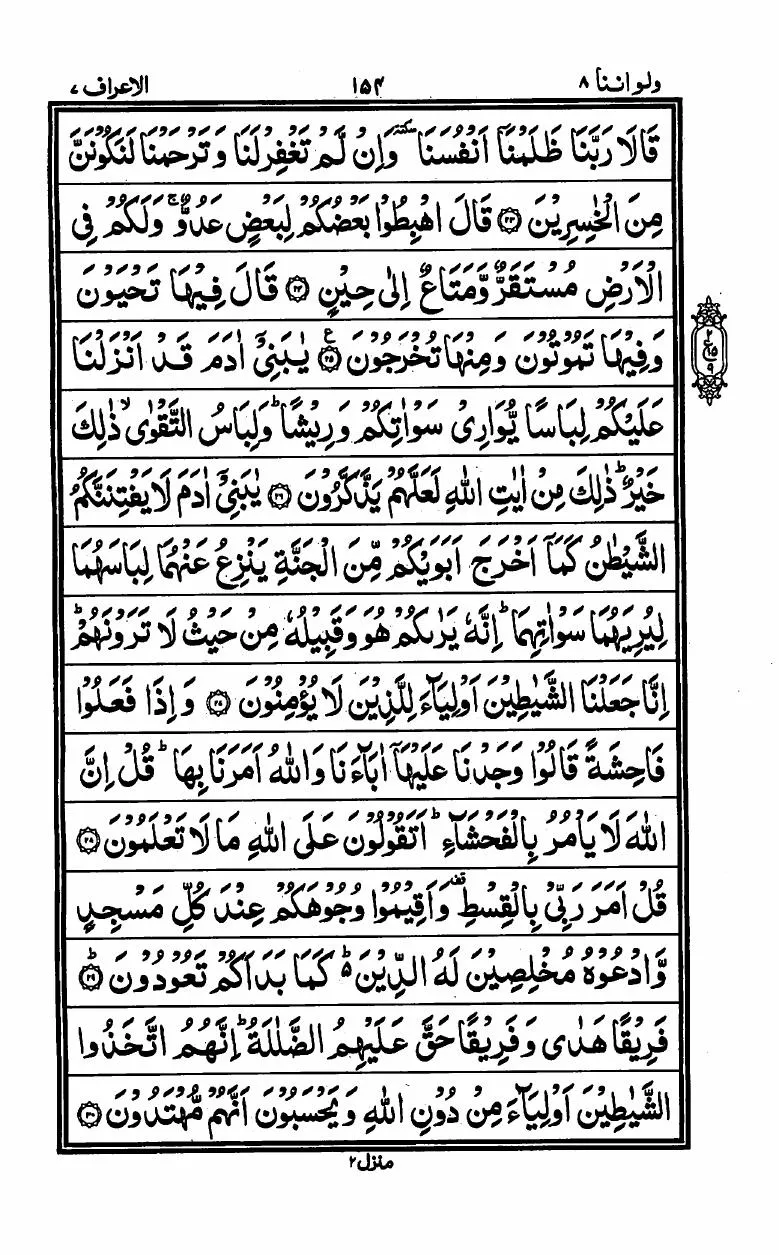 ولواننا ۸ ۱۵۴ الاعراف ۷
قَالَا رَبَّنَا ظَلَمْنَاۤ اَنْفُسَنَا ٚ وَاِنْ لَّمْ تَغْفِرْ لَنَا وَتَرْحَمْنَا لَنَكُوْنَنَّ
مِنَ الْخٰسِرِيْنَ ﴿۲۳﴾ قَالَ اهْبِطُوْا بَعْضُكُمْ لِبَعْضٍ عَدُوٌّ ۚ وَلَكُمْ فِى
الْاَرْضِ مُسْتَقَرٌّ وَّمَتَاعٌ اِلٰى حِيْنٍ ﴿۲۴﴾ قَالَ فِيْهَا تَحْيَوْنَ
وَفِيْهَا تَمُوْتُوْنَ وَمِنْهَا تُخْرَجُوْنَ ﴿۲۵﴾ ع يٰبَنِىْۤ اٰدَمَ قَدْ اَنْزَلْنَا
عَلَيْكُمْ لِبَاسًا يُّوَارِىْ سَوْاٰتِكُمْ وَرِيْشًا ؕ وَلِبَاسُ التَّقْوٰى ۙ ذٰلِكَ
خَيْرٌ ؕ ذٰلِكَ مِنْ اٰيٰتِ اللّٰهِ لَعَلَّهُمْ يَذَّكَّرُوْنَ ﴿۲۶﴾ يٰبَنِىْۤ اٰدَمَ لَا يَفْتِنَنَّكُمُ
الشَّيْطٰنُ كَمَاۤ اَخْرَجَ اَبَوَيْكُمْ مِّنَ الْجَنَّةِ يَنْزِعُ عَنْهُمَا لِبَاسَهُمَا
لِيُرِيَهُمَا سَوْاٰتِهِمَا ؕ اِنَّهٗ يَرٰىكُمْ هُوَ وَقَبِيْلُهٗ مِنْ حَيْثُ لَا تَرَوْنَهُمْ ؕ
اِنَّا جَعَلْنَا الشَّيٰطِيْنَ اَوْلِيَآءَ لِلَّذِيْنَ لَا يُؤْمِنُوْنَ ﴿۲۷﴾ وَاِذَا فَعَلُوْا
فَاحِشَةً قَالُوْا وَجَدْنَا عَلَيْهَاۤ اٰبَآءَنَا وَاللّٰهُ اَمَرَنَا بِهَا ؕ قُلْ اِنَّ
اللّٰهَ لَا يَاْمُرُ بِالْفَحْشَآءِ ؕ اَتَقُوْلُوْنَ عَلَى اللّٰهِ مَا لَا تَعْلَمُوْنَ ﴿۲۸﴾
قُلْ اَمَرَ رَبِّىْ بِالْقِسْطِ ۟ وَاَقِيْمُوْا وُجُوْهَكُمْ عِنْدَ كُلِّ مَسْجِدٍ
وَّادْعُوْهُ مُخْلِصِيْنَ لَهُ الدِّيْنَ ۬ؕ كَمَا بَدَاَكُمْ تَعُوْدُوْنَ ﴿۲۹﴾ ؕ
فَرِيْقًا هَدٰى وَفَرِيْقًا حَقَّ عَلَيْهِمُ الضَّلٰلَةُ ؕ اِنَّهُمُ اتَّخَذُوا
الشَّيٰطِيْنَ اَوْلِيَآءَ مِنْ دُوْنِ اللّٰهِ وَيَحْسَبُوْنَ اَنَّهُمْ مُّهْتَدُوْنَ ﴿۳۰﴾
منزل ۲
۲
ع ۱۵
۹